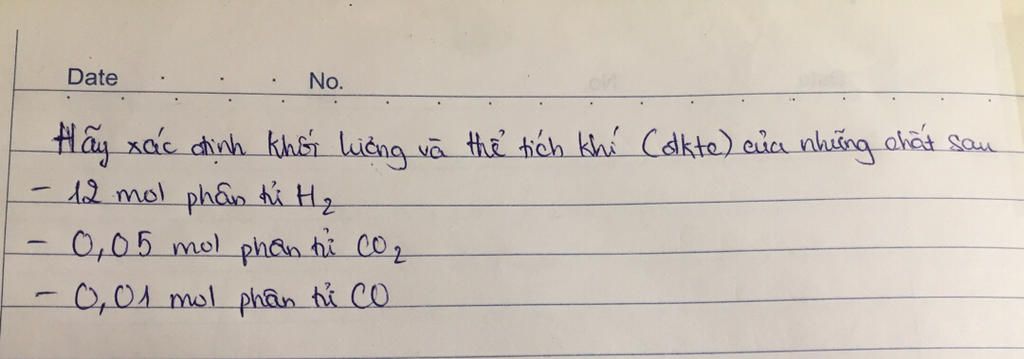 Date . . . No.
Hãy xác định khối lượng và thể tích khí (đktc) của những chất sau
- 12 mol phân tử H₂
- 0,05 mol phân tử CO₂
- 0,01 mol phân tử CO